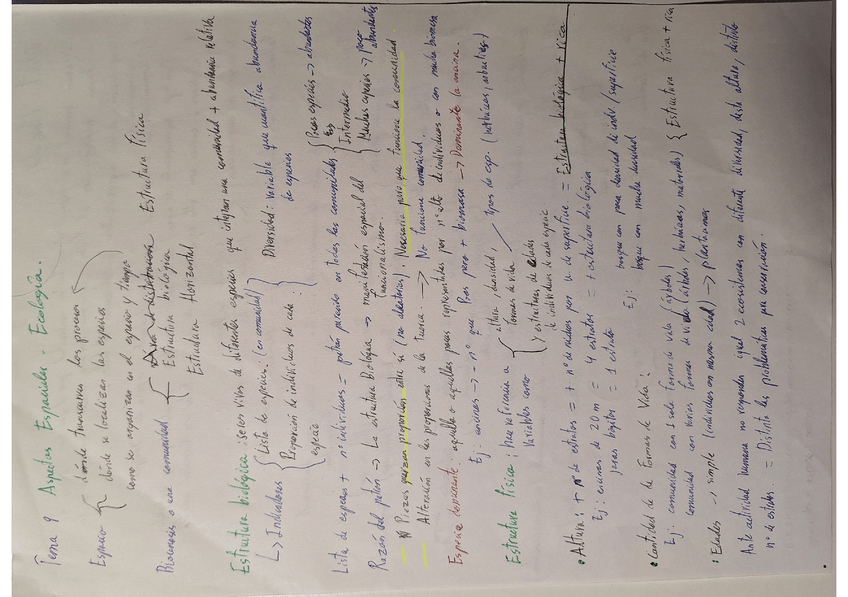 Tema 9 Aspectos Espaciales - Ecología.
Espacio { dónde funcionan los procesos
dónde se localizan las especies
como se organizan en el espacio y tiempo
Biocenosis o una comunidad { Estructura Física
Estructura biológica
Estructura Horizontal
Estructura biológica: seres vivos de diferentes especies que integran una comunidad + abundancia relativa
↳ Indicadores { Lista de especies. (en comunidad)
Proporción de individuos de cada especie
Diversidad: variable que cuantifica abundancia de especies
Lista de especies + nº individuos = patrón parecido en todas las comunidades { Pocas especies → abundantes
Intermedio
Muchas especies → poco abundantes
Razón del patrón → La estructura Biológica → manifestación espacial del funcionalismo.
* Piezas guardan proporción entre sí (no aleatorias). Necesaria para que funcione la comunidad
Alteración en las proporciones de la tuerca. → No funciona comunidad.
Especie dominante: aquella o aquellas pocas representadas por nº alto de individuos o con mucha biomasa
Ej: encinas → - nº que Poas pero + biomasa → Dominante la encina.
Estructura física: Hace referencia a variables como { altura, densidad,
formas de vida / tipos de esp. (herbáceas, arbustivas)
y estructuras de edades
de individuos de cada especie
• Altura: + nº de estratos = + nº de individuos por u. de superficie = Estructura biológica + rica
Ej: encinas de 20 m = 4 estratos = + estructura biológica
jaras bajitas = 1 estrato
Ej: bosque con poca densidad de indiv./superficie
bosque con mucha densidad
• Cantidad de las Formas de Vida:
Ej: comunidad con 1 sola forma de vida (árboles)
comunidad con varias formas de vida (árboles, herbáceas, matorrales) { Estructura física + rica
• Edades → simple (individuos en misma edad) → plantaciones
Ante actividad humana no responden igual 2 ecosistemas con diferente diversidad, dista altura, distinto
nº de estratos. = Distinta las problemáticas pa conservación.